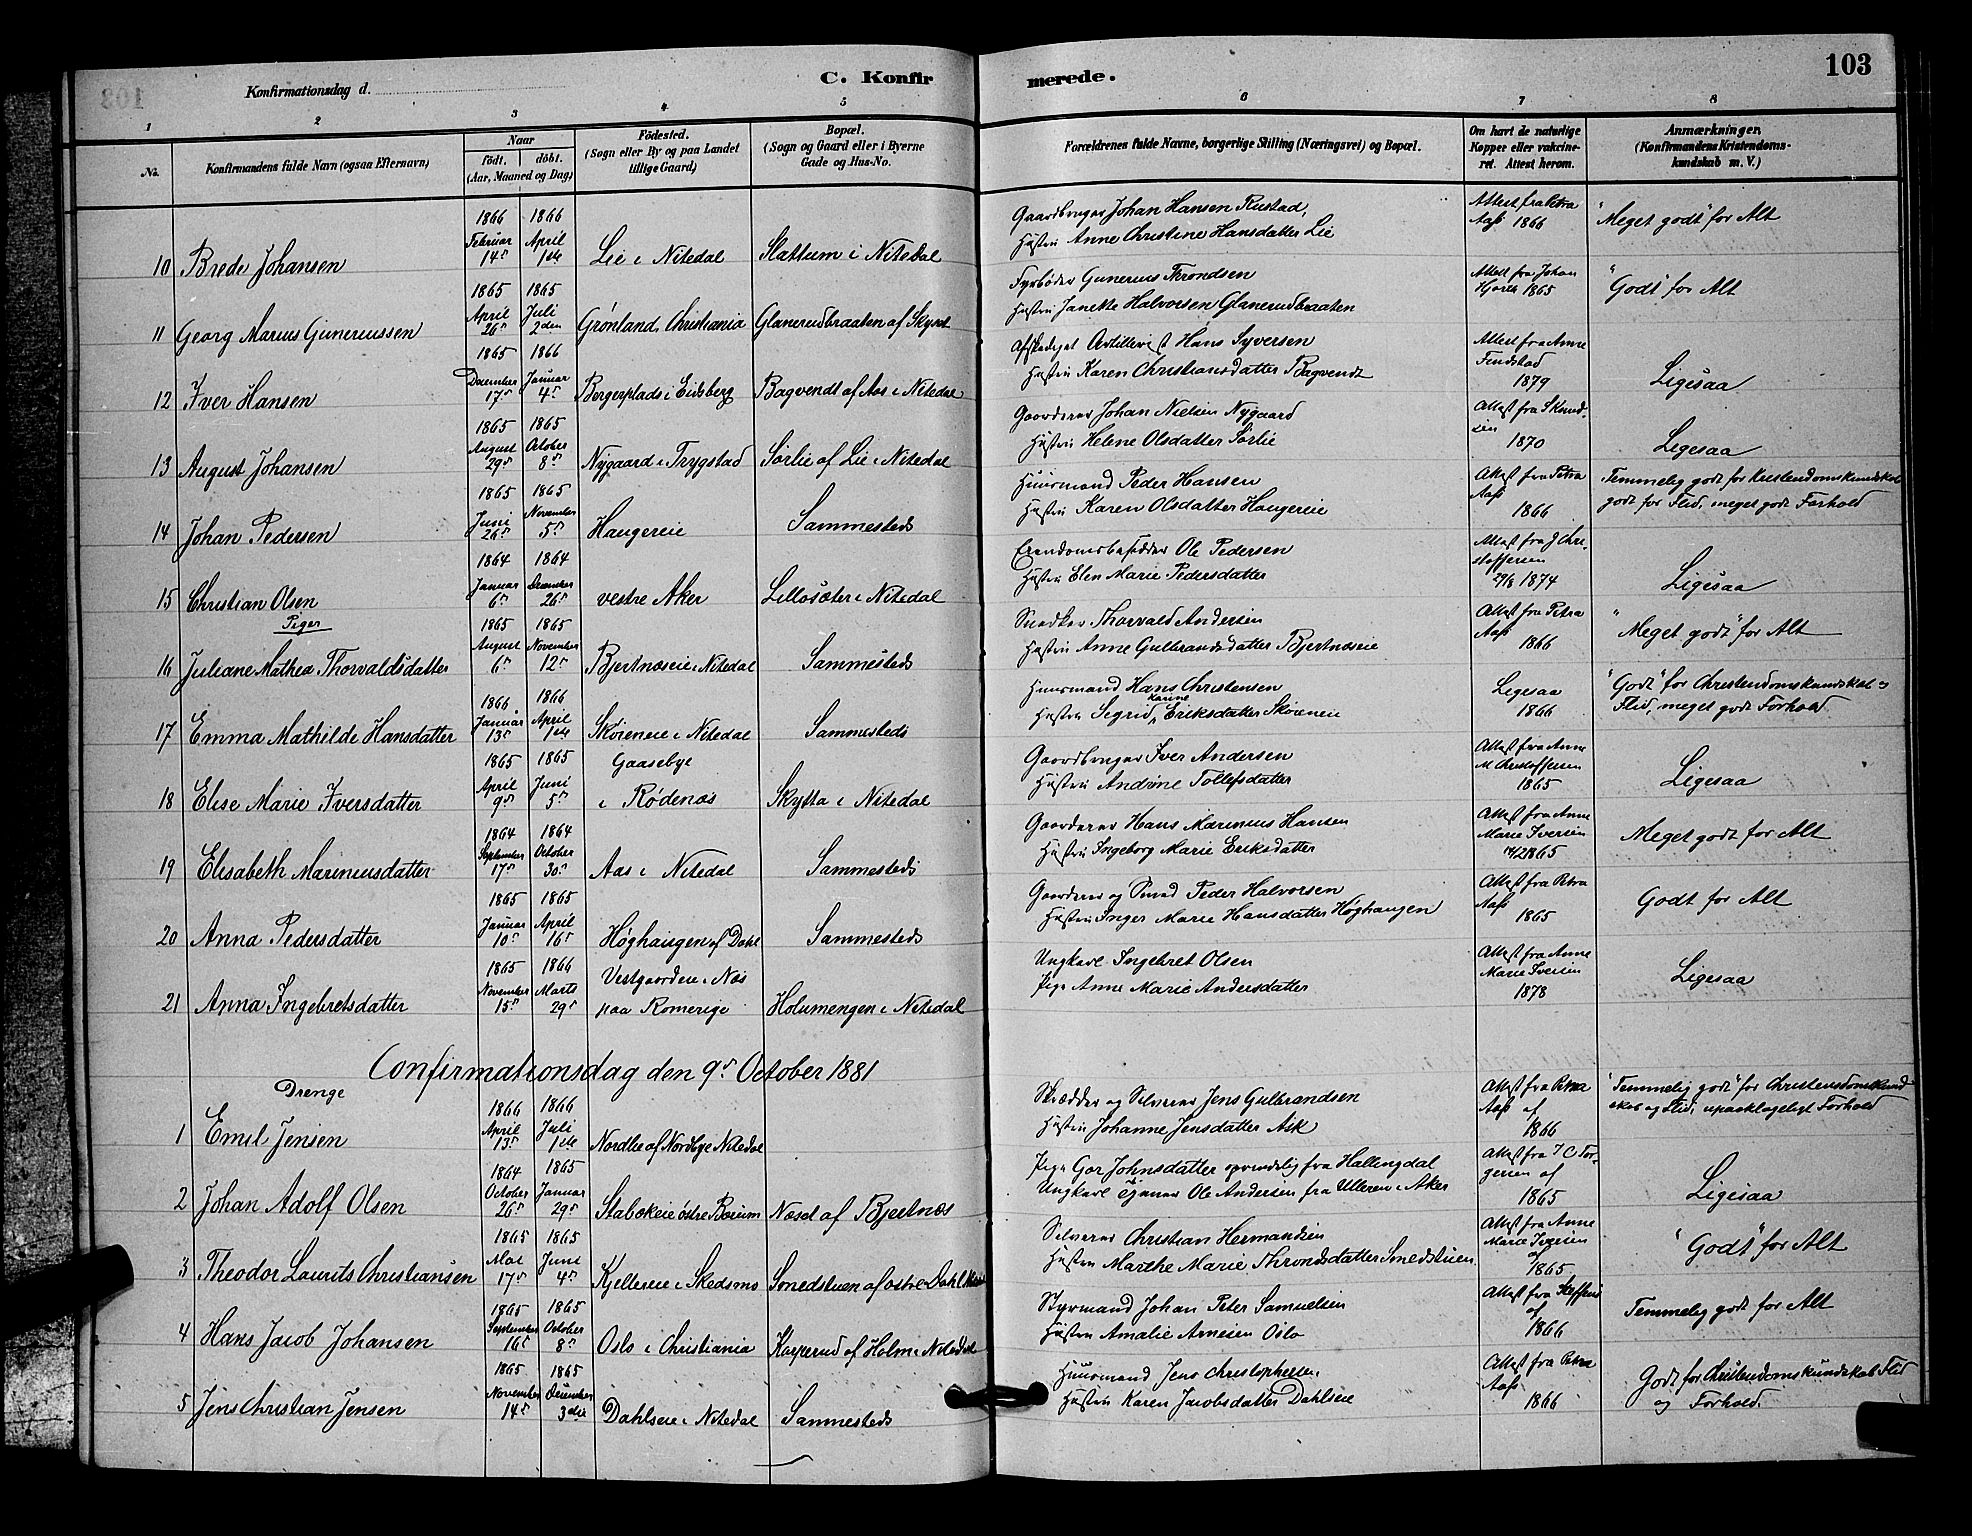 103
C. Konfirmerede.
Konfirmationsdag d.
1 2 3 4 5 6 7 8
No. Konfirmandens fulde Navn (ogsaa Efternavn)
Naar
Födt. döbt.
(Aar, Maaned og Dag)
Födested.
(Sogn eller By og paa Landet
tillige Gaard)
Bopæl.
(Sogn og Gaard eller i Byerne
Gade og Hus-No.
Forældrenes fulde Navne, borgerlige Stilling (Næringsvei) og Bopæl.
Om havt de naturlige
Kopper eller vakcine-
ret. Attest herom.
Anmærkninger.
(Konfirmandens Kristendoms-
kundskab m. V.)
10 Brede Johansen
1866 Februar 14de
1866 April 1ste
Lie i Nitedal
Slattum i Nitedal
Gaardbruger Johan Hansen Rustad,
Hustru Anne Christine Hansdatter Lie
Attest fra Petra
Aass 1866
"Meget godt" for Alt
11 Georg Marius Gunerussen
1865 April 26de
1865 Juli 2den
Grønland, Christiania
Glanerudbraaten af Skyset
Fyrbøder Gunerius Throndsen
Hustru Janette Halvorsen Glanerudbraaten
Attest fra Johan
1865
"Godt" for Alt
12 Iver Hansen
1865 December 17de
1866 Januar 4de
Bergerplads i Eidsberg
Bagvendt af Aas i Nitedal
Afskediget Artillerist Hans Syversen
Hustru Karen Christiansdatter Bagvendt
Attest fra Anne
Findstad
1879
Ligesaa
13 August Johansen
1865 August 29de
1865 October 8de
Nygaard i Trygstad
Sørlie af Lie i Nitedal
Gaardener Johan Nielsen Nygaard
Hustru Helene Olsdatter Sørlie
Attest fra
1870
Ligesaa
14 Johan Pedersen
1865 Juni 26de
1865 November 5de
Haugereie
Sammesteds
Huusmand Peder Hansen
Hustru Karen Olsdatter Haugereie
Attest fra Petra
Aass
1866
Temmelig godt for Kristendomskundskab
godt for Flid, meget godt Forhold
15 Christian Olsen
1864 Januar 6te
1864 December 26de
vestre Aker
Lillosæter i Nitedal
Eiendomsbesidder Ole Pedersen
Hustru Elen Marie Pedersdatter
Attest fra J Chri-
stoffersen
1874
Ligesaa
Piger
16 Juliane Mathea Thorvaldsdatter
1865 August 6te
1865 November 12te
Bjertnæseie i Nitedal
Sammesteds
Snedker Thorvald Andersen
Hustru Anne Gulbrandsdatter Bjertnæseie
Attest fra Petra
Aass
1866
"Meget godt" for Alt
17 Emma Mathilde Hansdatter
1866 Januar 13de
1866 April 1ste
Skøieneie i Nitedal
Sammesteds
Huusmand Hans Christensen
Hustru Segrid Karine Eriksdatter Skøieneie
Ligesaa
1866
"Godt" for Christendomskundskab og
Flid, meget godt Forhold
18 Elise Marie Iversdatter
1865 April 9de
1865 Juni 5te
Gaasebye
i Rødenæs
Skytta i Nitedal
Gaardbruger Iver Andersen
Hustru Andrine Tollefsdatter
Attest fra Anne
M Christoffersen
1865
Ligesaa
19 Elisabeth Marineusdatter
1864 September 17de
1864 October 30te
Aas i Nitedal
Sammesteds
Gaardener Hans Marineus Hansen
Hustru Ingeborg Marie Eriksdatter
Attest fra Anne
Marie Iversen
1865
Meget godt for Alt
20 Anna Pedersdatter
1865 Januar 10de
1865 April 16de
Høghaugen af Dahl
Sammesteds
Gaardener og Smed Peder Halvorsen
Hustru Inger Marie Hansdatter Høghaugen
Attest fra Petra
Aass
1865
Godt for Alt
21 Anna Ingebretsdatter
1865 November 15de
1866 Marts 29de
Vestgaardeie i Næs
paa Romerige
Holumengen i Nitedal
Ungkarl Ingebret Olsen
Pige Anne Marie Andersdatter
Attest fra Anne
Marie Iversen
1878
Ligesaa
Confirmationsdag den 9de October 1881
Drenge
1 Emil Jensen
1866 April 13de
1866 Juli 1ste
Nordlie af Nordbye Nitedal
Skrædder og Selveier Jens Gulbrandsen
Hustru Johanne Jensdatter Ask
Attest fra Petra
Aass af
1866
"Temmelig godt" for Christendomskund
skab og Flid, upaaklageligt Forhold
2 Johan Adolf Olsen
1864 October 26de
1865 Januar 29de
Stabækeie østre Bærum
Næset af Bjertnæs
Pige Gor Johnsdatter oprindelig fra Hallingdal
Ungkarl Tjener Ole Andersen fra Ulleren i Aker
Attest fra J C Tor-
gersen af
1865
Ligesaa
3 Theodor Laurits Christiansen
1865 Mai 17de
1865 Juni 4de
Kjellereie i Skedsmo
Smedstuen af østre Dahl
Selveier Christian Hermandsen
Hustru Marthe Marie Throndsdatter Smedstuen
Attest fra Anne
Marie Iversen
af
1865
"Godt" for Alt
4 Hans Jacob Johansen
1865 September 16de
1865 October 8de
Oslo i Christiania
Kasperud af Holm i Nitedal
Styrmand Johan Peter Samuelsen
Hustru Amalie Arnesen Oslo
Attest fra Steffens
af
1866
Temmelig godt for Alt
5 Jens Christian Jensen
1865 November 14de
1865 December 3die
Dahlseie i Nitedal
Sammesteds
Huusmand Jens Christophersen
Hustru Karen Jacobsdatter Dahlseie
Attest fra Petra
Aass
1866
Godt for Christendomskundskab Flid
og Forhold.